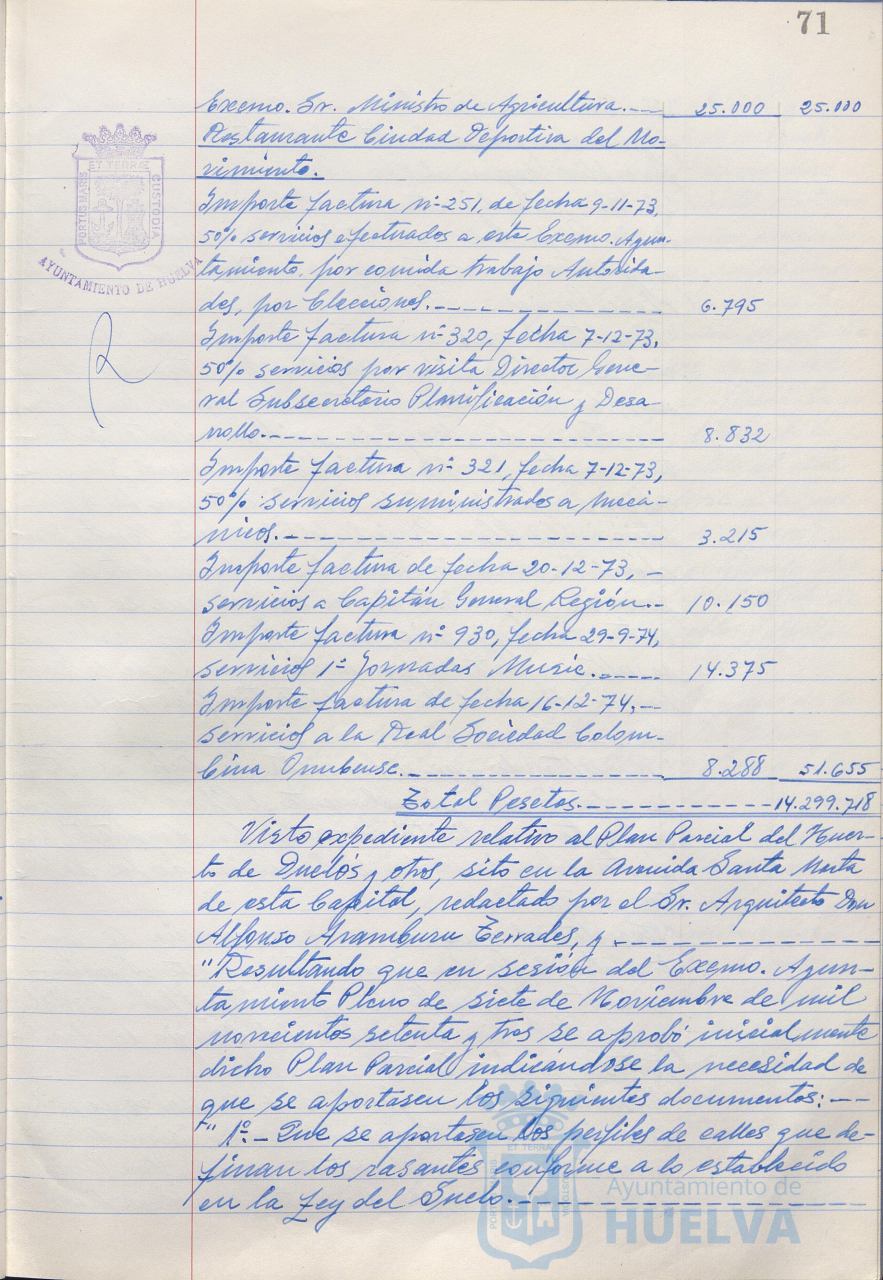 71
Excmo. Sr. Ministro de Agricultura.--- 25.000 25.000
Restaurante Ciudad Deportiva del Mo-
vimiento.
Importe factura nº 251, de fecha 9-11-73,
50% servicios efectuados a este Excmo. Ayun-
tamiento, por comida trabajo Autorida-
des, por Elecciones.------------ 6.795
Importe factura nº 320, fecha 7-12-73,
50% servicios por visita Director Gene-
ral Subsecretario Planificación y Desa-
rrollo.------------ 8.832
Importe factura nº 321, fecha 7-12-73,
50% servicios suministrados a mecá-
nicos.------------ 3.215
Importe factura de fecha 20-12-73, -
servicios a Capitán General Región.-- 10.150
Importe factura nº 930, fecha 29-9-74,
servicios 1ª Jornadas Music.----- 14.375
Importe factura de fecha 16-12-74,--
servicios a la Real Sociedad Colom-
bina Onubense.------------ 8.288 51.655
Total Pesetas.------------14.299.718
Visto expediente relativo al Plan Parcial del Huer-
to de Duelos y otros, sito en la Avenida Santa Marta
de esta Capital, redactado por el Sr. Arquitecto Don
Alfonso Aramburu Terrades, y ------------
"Resultando que en sesión del Excmo. Ayun-
tamiento Pleno de siete de Noviembre de mil
novecientos setenta y tres se aprobó inicialmente
dicho Plan Parcial indicándose la necesidad de
que se aportasen los siguientes documentos:---
" 1º.- Que se aportasen los perfiles de calles que de-
finan los rasantes conforme a lo establecido
en la Ley del Suelo.------------
ET TERRAE
PORTUS MARIS
CUSTODIA
AYUNTAMIENTO DE HUELVA
Ayuntamiento de
HUELVA